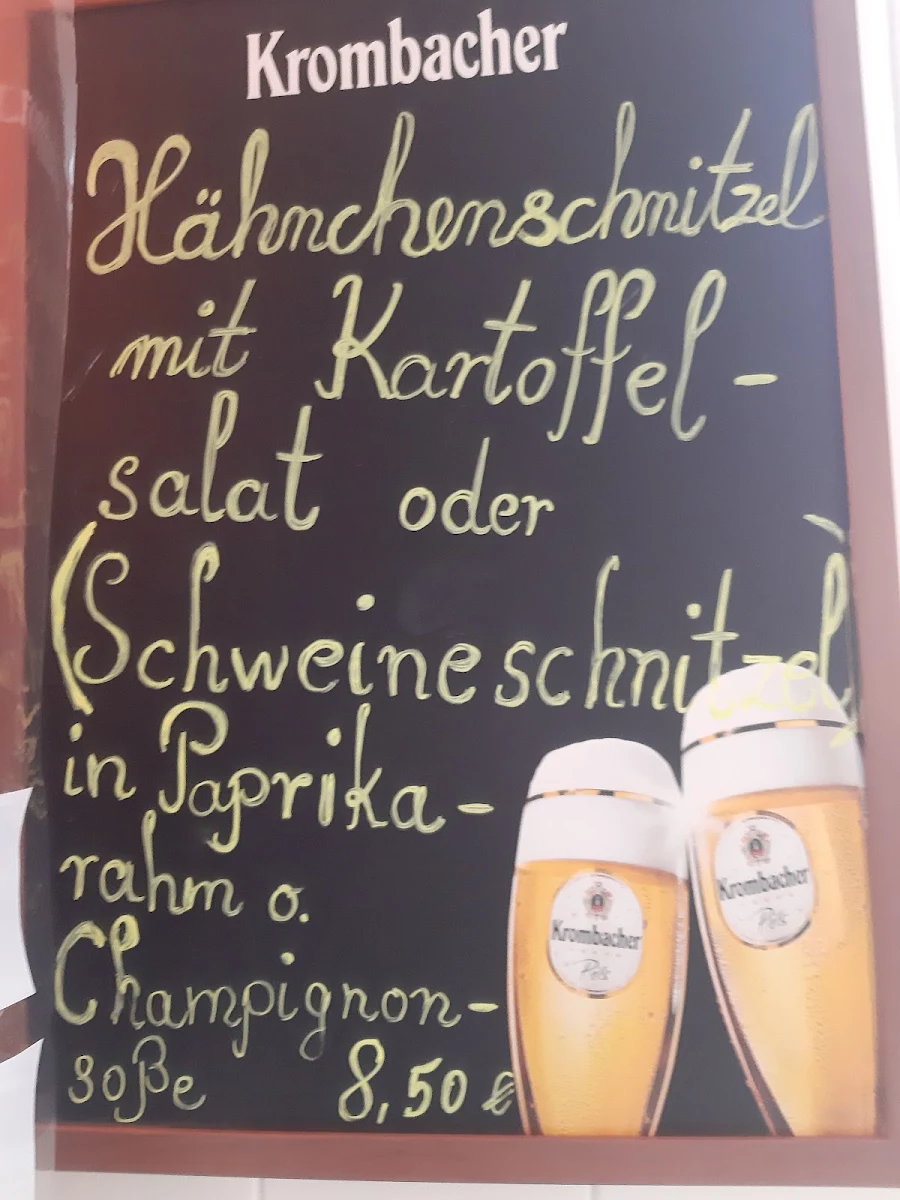 Krombacher
Hähnchenschnitzel
mit Kartoffel-
salat oder
(Schweineschnitzel)
in Paprika-
rahm o.
Champignon-
soße 8,50 €
Krombacher
Pils
Krombacher
Pils